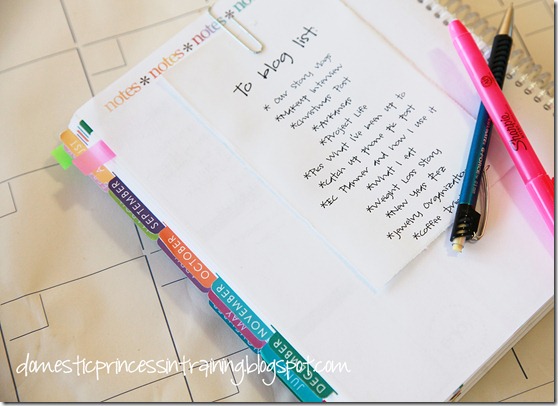 notes*notes*notes*notes*
To blog list
* Our story vlogs
*Makeup Interview
*Christmas Post
*Arkansas
*Project Life
*Pcs What I've been up to
*Catch up phone pic post
*EC Planner and how I use it
*What I eat
*Weight Loss Story
*New Year Rez
*Jewelry Organization
*Coffee
Sharpie
SEPTEMBER
OCTOBER
NOVEMBER
MAY
DECEMBER
JUNE
domesticprincessintraining.blogspot.com